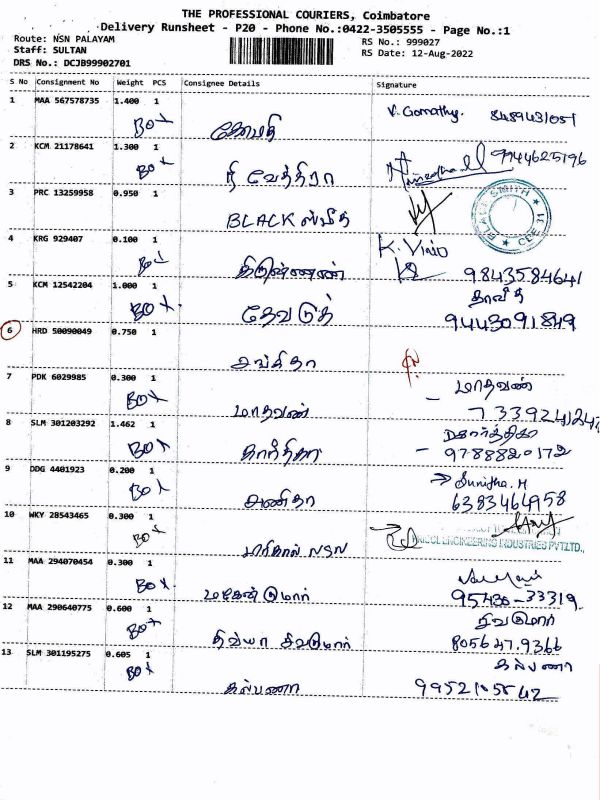 THE PROFESSIONAL COURIERS, Coimbatore
Delivery Runsheet - P20 - Phone No.:0422-3505555 - Page No.:1
Route: NSN PALAYAM RS No.: 999027
Staff: SULTAN RS Date: 12-Aug-2022
DRS No.: DCJB99902701
S No Consignment No Weight PCS Consignee Details Signature
1 MAA 567578735 1.400 1 V. Gomathy. 8489431051
BOX கோமதி
2 KCM 21178641 1.300 1 9944625196
BOX
3 PRC 13259958 0.950 1 BLACK SMITH
BLACK ஸ்மீத்
4 KRG 929407 0.100 1
BOX 9843584641
5 KCM 12542204 1.000 1 தாவீத்
BOX 9443091849
6 HRD 50090049 0.750 1
சங்கீதா
7 PDK 6029985 0.300 1 மாதவன்
BOX மாதவண் 7339241247
8 SLM 301203292 1.462 1
BOX 9788820172
9 DDG 4401923 0.200 1 Sunitha. M
BOX 6383464958
10 WKY 28543465 0.300 1
BOX ENGINEERING INDUSTRIES PVT LTD.,
11 MAA 294070454 0.300 1
BOX 95430-33319
12 MAA 290640775 0.600 1 சிவகுமார்
BOX திவ்யா சிவகுமார் 805647.9366
13 SLM 301195275 0.605 1 கல்பனா
BOX கல்பனா 9952105842